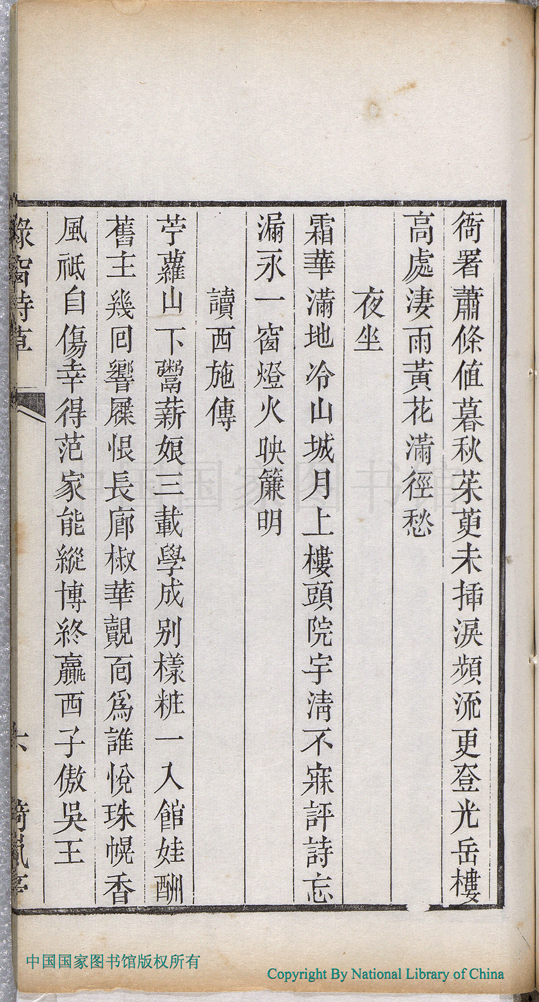 衙署蕭條值暮秋茱萸未揷淚頻流更登光岳樓
高處凄雨黃花滿徑愁
夜坐
霜華滿地冷山城月上樓頭院宇淸不寐評詩忘
漏永一窗燈火映簾明
讀西施傳
苧蘿山下鬻薪娘三載學成別樣粧一入館娃酬
舊主幾回響屧恨長廊椒華覿面爲誰悅珠幌香
風祗自傷幸得范家能縱博終贏西子傲吳王
窗詩草
六
中国国家图书馆
中国国家图书馆版权所有
Copyright By National Library of China